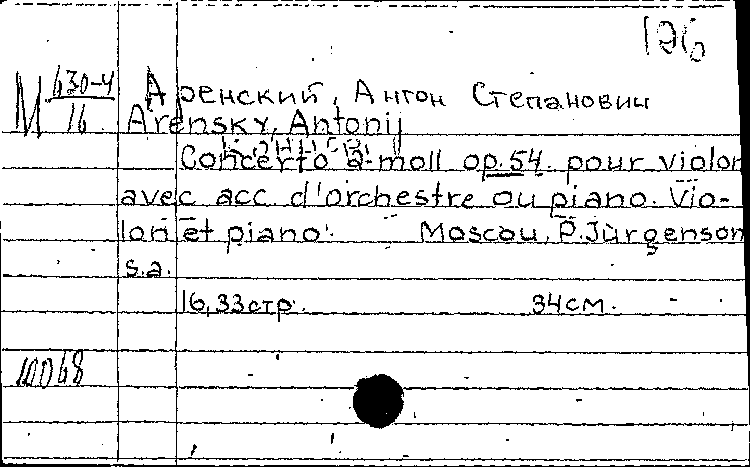 196
M 630-4/16
Аренский, Антон Степанович
Arensky, Antonij
Concerto a-moll op. 54. pour violon
avec acc. d'orchestre ou piano. Vio-
lon et piano. Moscou, P. Jürgenson
s.a.
16, 33 стр. 34 см.
10068